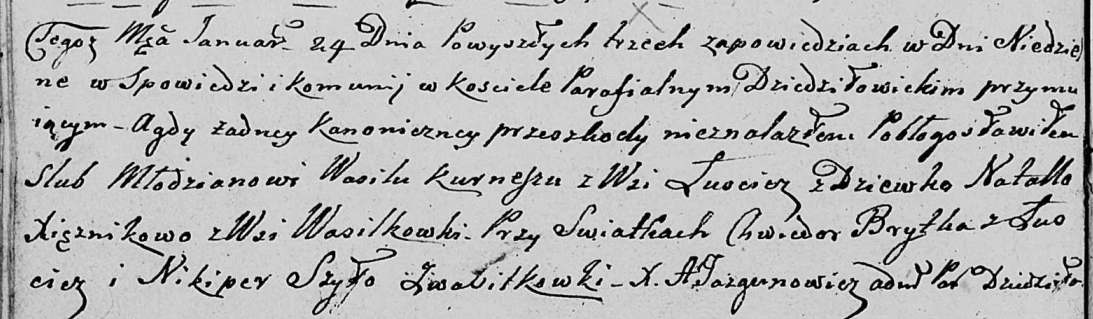 Tegoż Mca Januar. 24 Dnia Powyszłych trzech zapowiedziach w Dni Niedziel
ne w Spowiedzi i komunij w kosciele Parafialnym Dziedziłowickim przymu
iącym - Agdy żadney kanoniczney przeszkody nieznalazłem Pobłogosławiłem
Slub Młodzianowi Wasilu Kurneszu z Wsi Łuscicz z Dziewką Natallo
Xięznikowo z Wsi Wasilkowki. Przy Swiatkach Chwiedor Brytka z Łus
cicz i Nikiper Szyło Zwasilkowki - X. A Jazgunowicz adm Par Dziedziło.